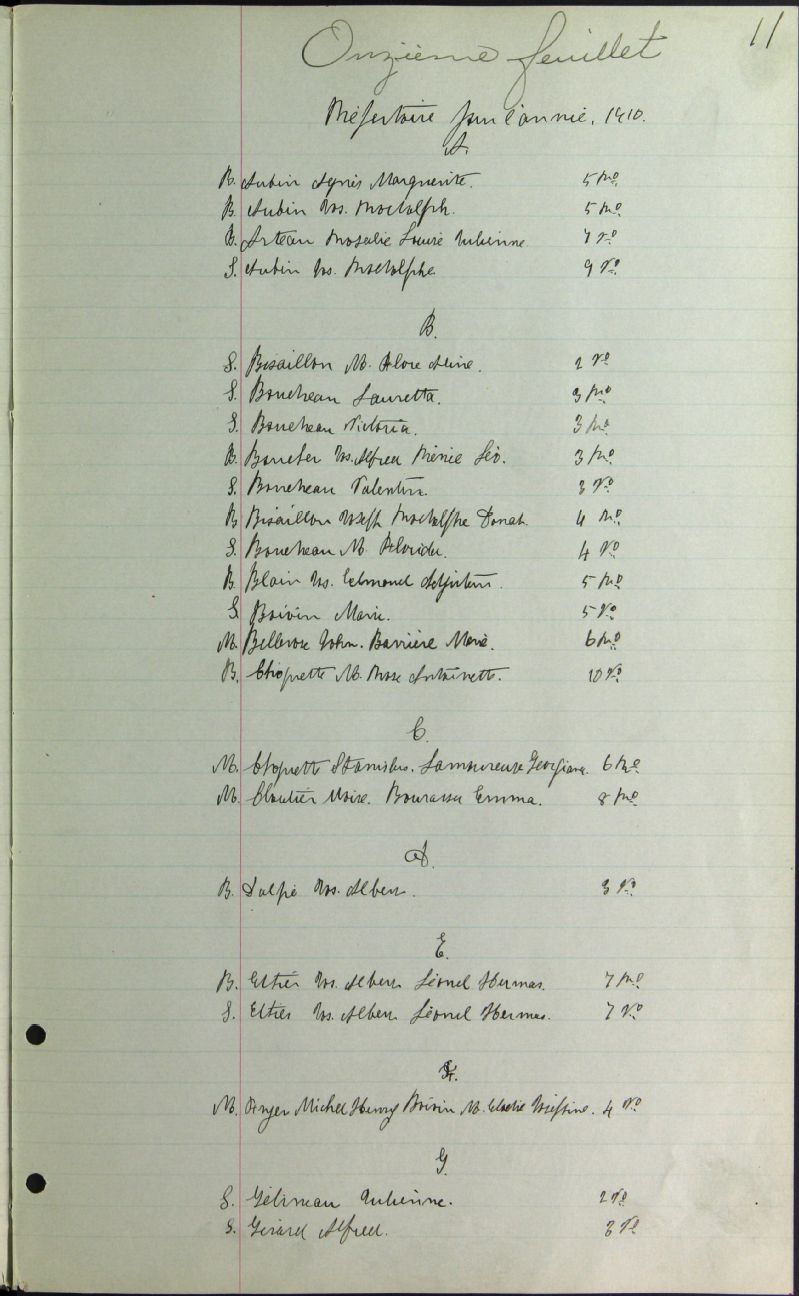 11
Onzième feuillet
Répertoire pour l'année, 1910.
A.
B. Aubin Agnès Marguerite. 5 Ro
B. Aubin Jos. Rodolph. 5 Ro
B. Arteau Rosalie Louise Julienne 7 Vo
S. Aubin Jos. Rodolphe 9 Vo
B.
S. Bisaillon M. Flore Aline. 2 Vo
S. Boucheau Lauretta. 3 Ro
S. Boucheau Victoria. 3 Ro
B. Boucher Jos. Alfred Léo. 3 Ro
S. Boucheau Valentin. 3 Vo
B. Bisaillon Joseph Rodolphe Donat. 4 Ro
S. Boucheau M. Florida. 4 Vo
B. Blain Jos. Edmond 5 Ro
S. Boivin Marie. 5 Vo
M. Bellerose John. Barrière Marie. 6 Ro
B. Choquette M. Rose Antoinette. 10 Vo
C.
M. Choquette Stanislas. Lamoureuse Georgiana. 6 Ro
M. Cloutier Moïse. Bourassa Emma. 8 Ro
D.
B. Dulpé Jos. Albert. 3 Vo
E.
B. Ethier Jos. Albert Léonel Hermas. 7 Ro
S. Ethier Jos. Albert Léonel Hermas. 7 Vo
F.
M. Michel Henry Boivin M. Joséphine. 4 Vo
G.
S. Gélineau Julienne. 2 Vo
S. Girard Alfred. 3 Vo